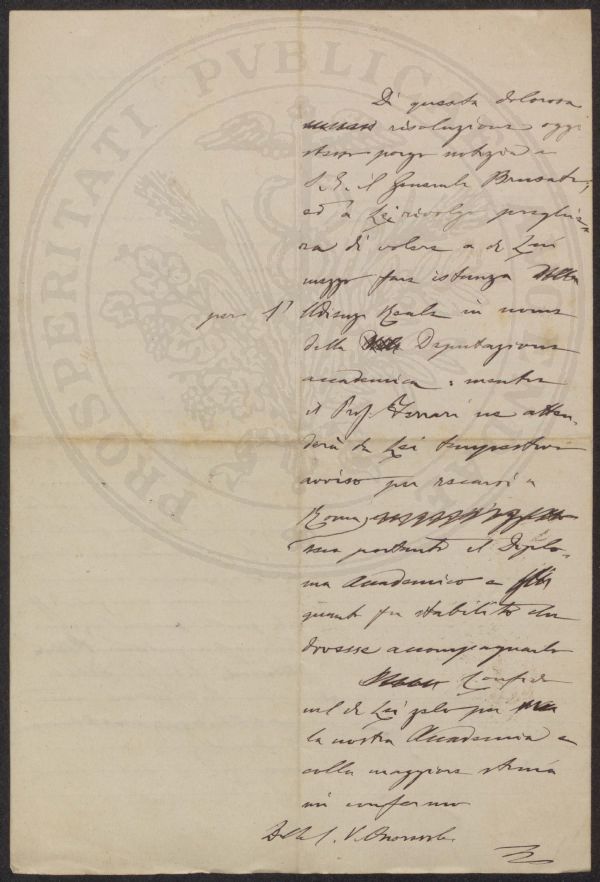 PROSPERITATI PVBLICAE
Di questa dolorosa
risoluzione oggi
stesso porgo notizia a
S. E. il Generale Brusati,
ed a Lei rivolgo preghie-
ra di volere a di Lui
mezzo fare istanza
per l'Udienza Reale in nome
della Deputazione
accademica: mentre
il Prof. Ferrari ne atten-
derà da Lei tempestivo
avviso per recarsi a
Roma,
seco portando il Diplo-
ma Accademico e
quanto fu stabilito che
dovesse accompagnarlo
Confido
nel di Lei zelo per
la nostra Accademia e
colla maggiore stima
mi confermo
Della S. V. Onorevole